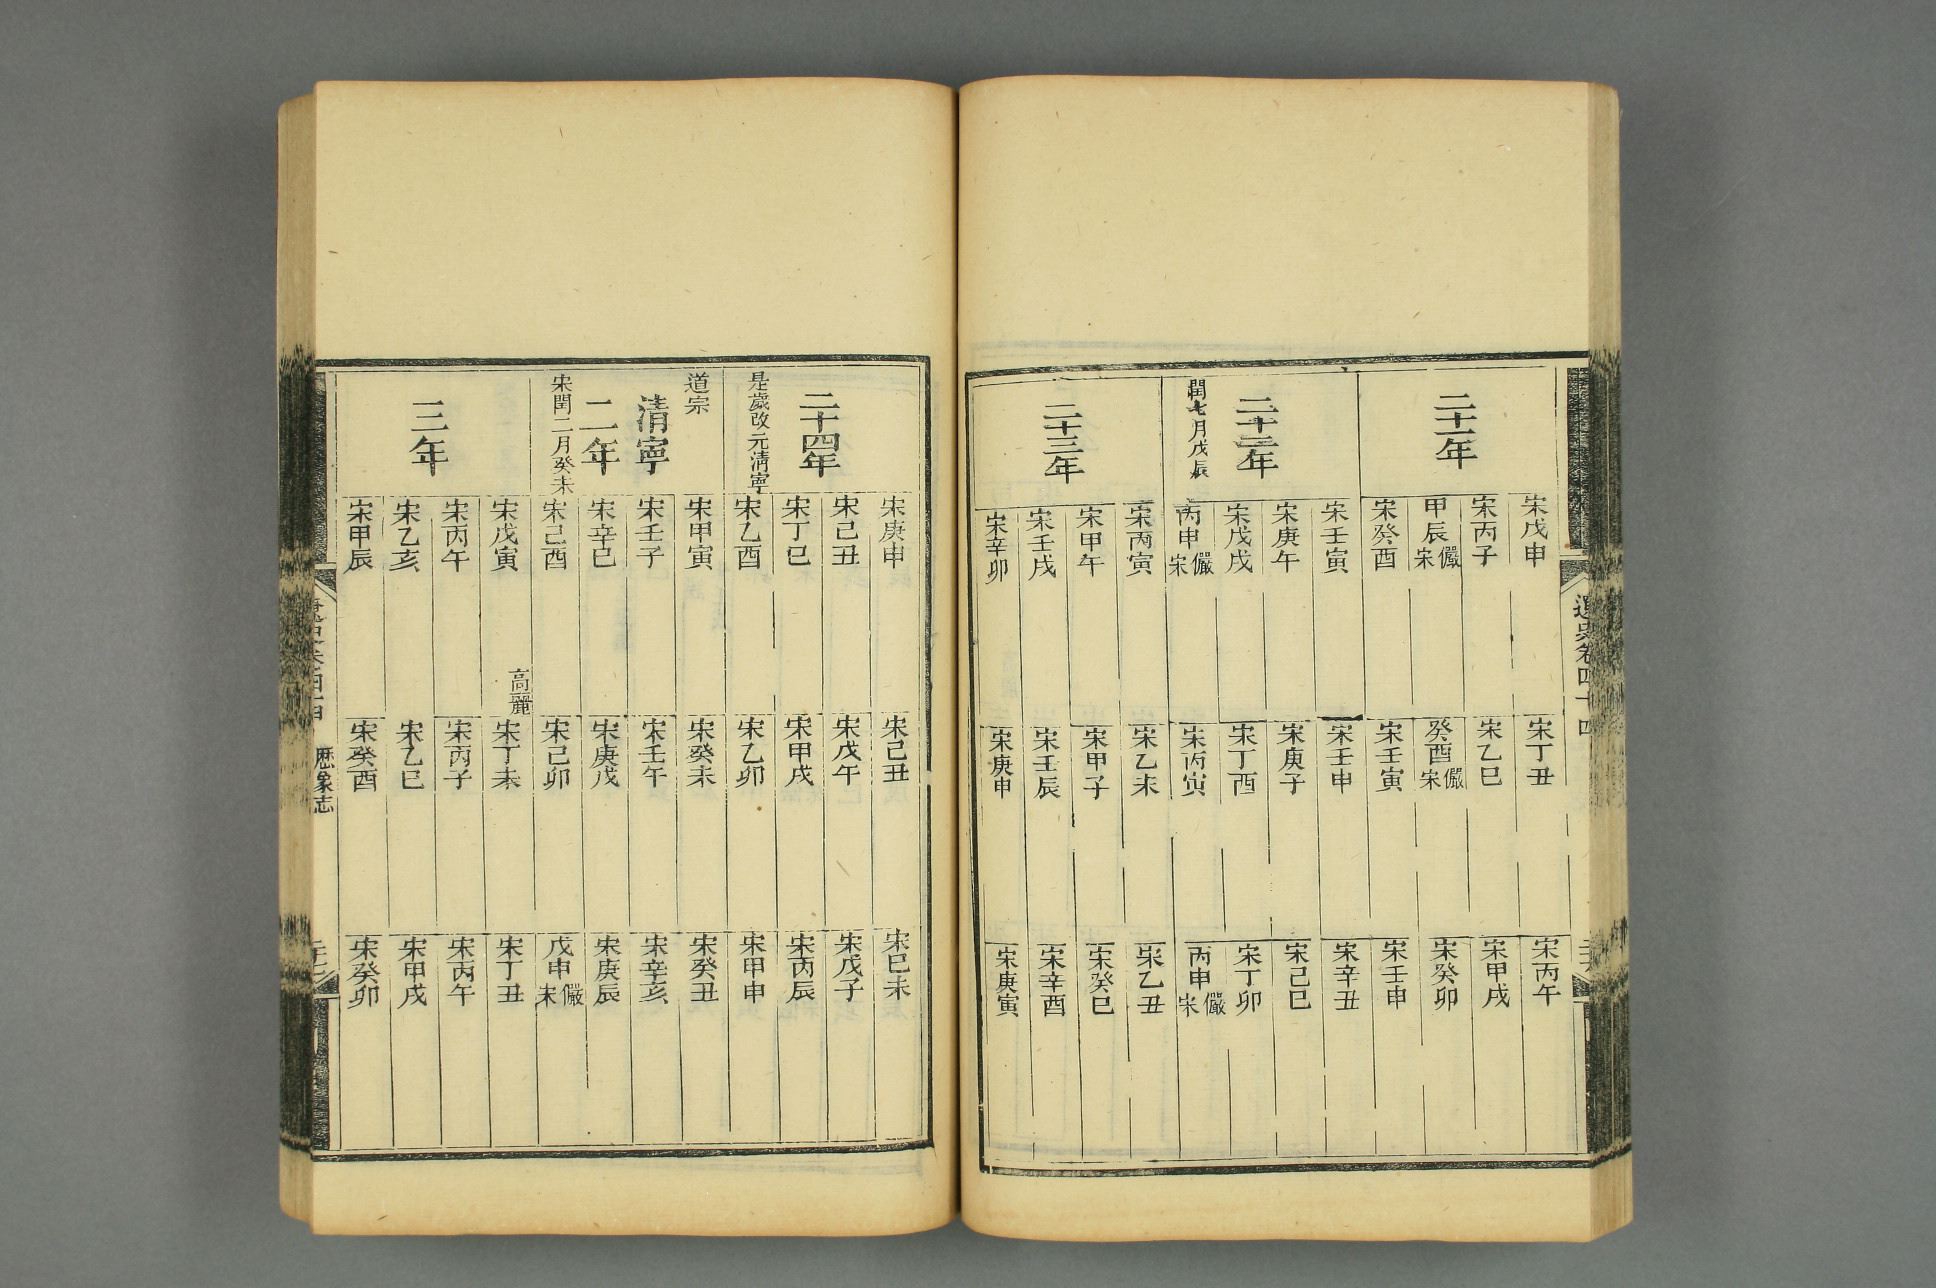 遼史卷四十四
二十一年
宋戊申
宋丁丑
宋丙午
宋丙子
宋乙巳
宋甲戌
甲辰儼宋
癸酉儼宋
宋癸卯
宋癸酉
宋壬寅
宋壬申
二十二年
宋壬寅
宋壬申
宋辛丑
宋庚午
宋庚子
宋己巳
宋戊戌
宋丁酉
宋丁卯
閏七月戊辰
丙申儼宋
宋丙寅
丙申儼宋
二十三年
宋丙寅
宋乙未
宋乙丑
宋甲午
宋甲子
宋癸巳
宋壬戌
宋壬辰
宋辛酉
宋辛卯
宋庚申
宋庚寅
二十四年
宋庚申
宋己丑
宋己未
宋己丑
宋戊午
宋戊子
宋丁巳
宋甲戌
宋丙辰
是歲改元清寧
宋乙酉
宋乙卯
宋甲申
道宗
宋甲寅
宋癸未
宋癸丑
清寧
宋壬子
宋壬午
宋辛亥
二年
宋辛巳
宋庚戌
宋庚辰
宋閏二月癸未
宋己酉
宋己卯
戊申儼宋
三年
宋戊寅
高麗
宋丁未
宋丁丑
宋丙午
宋丙子
宋丙午
宋乙亥
宋乙巳
宋甲戌
宋甲辰
宋癸酉
宋癸卯
歷象志